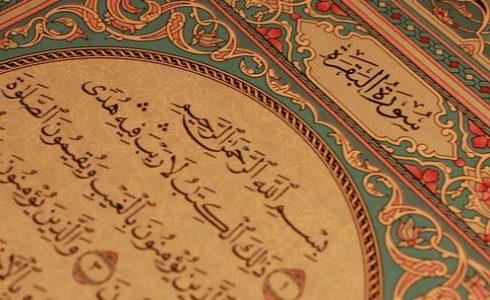 سُورَةُ البَقَرَةِ
بِسْمِ ٱللَّهِ ٱلرَّحْمَٰنِ ٱلرَّحِيمِ
١ ذَٰلِكَ ٱلْكِتَٰبُ لَا رَيْبَ ۛ فِيهِ ۛ هُدًى
ٱلَّذِينَ يُؤْمِنُونَ بِٱلْغَيْبِ وَيُقِيمُونَ ٱلصَّلَوٰةَ
٣ وَٱلَّذِينَ يُؤْمِنُونَ